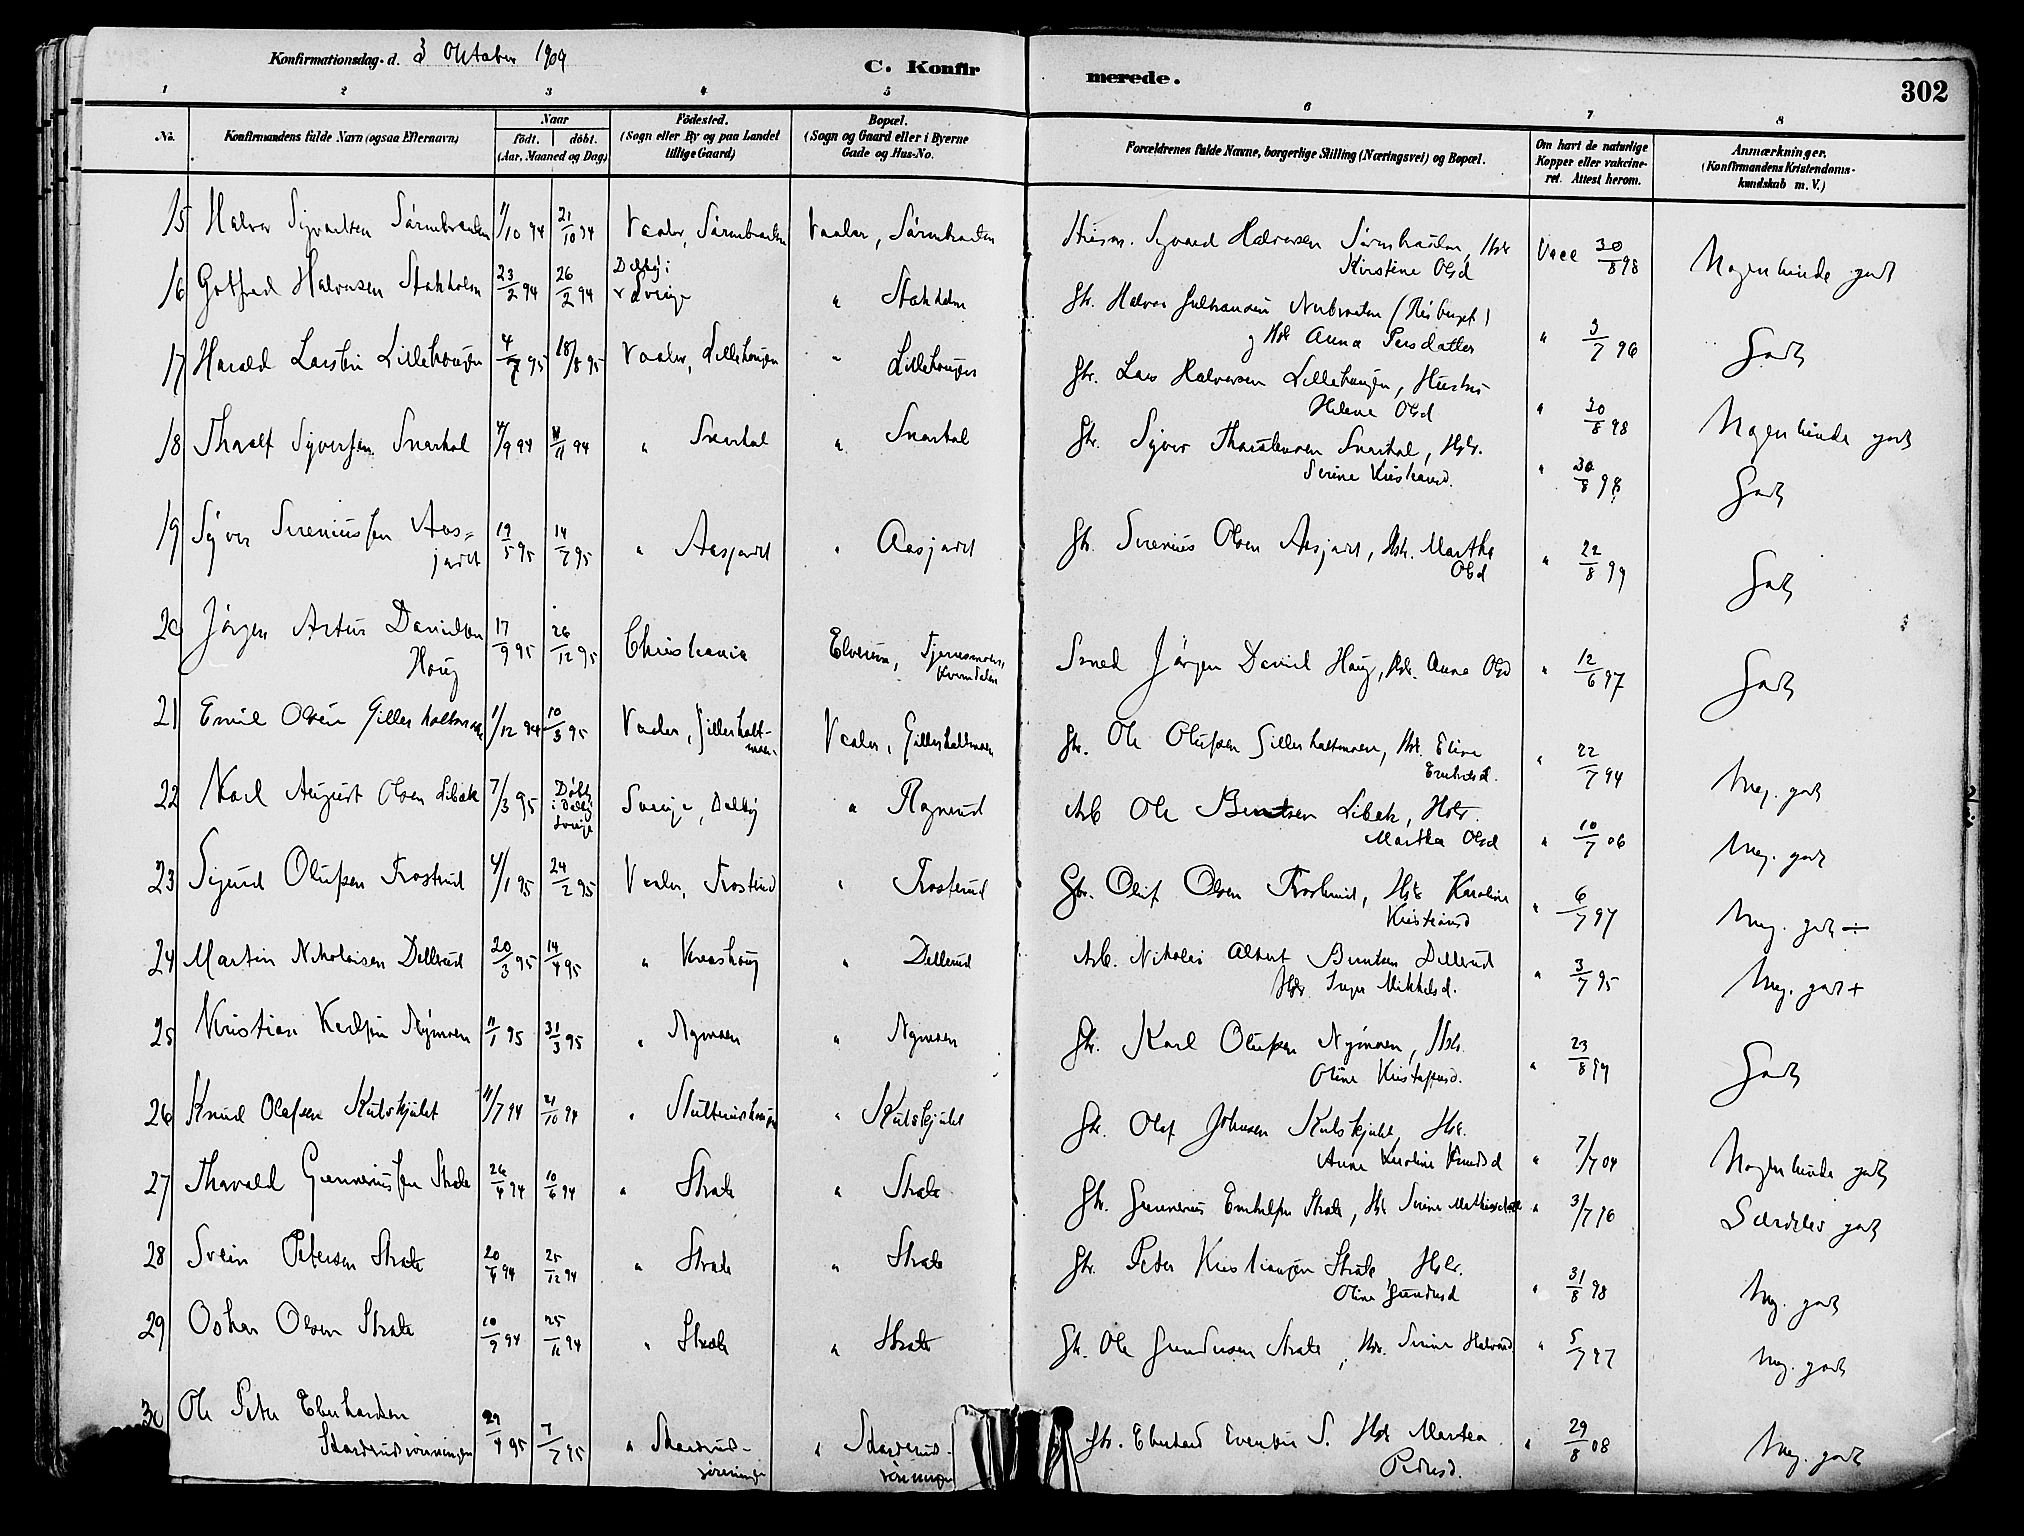 Konfirmationsdag d. 3 Oktober 1909
C. Konfirmerede.
302
1 2 3 4 5 6 7 8
No. Konfirmandens fulde Navn (ogsaa Efternavn) Naar født. døbt. (Aar, Maaned og Dag) Fødested. (Sogn eller By og paa Landet tillige Gaard) Bopæl. (Sogn og Gaard eller i Byerne Gade og Hus-No. Forældrenes fulde Navne, borgerlige Stilling (Næringsvei) og Bopæl. Om havt de naturlige Kopper eller vakcineret. Attest herom. Anmærkninger. (Konfirmandens Kristendomskundskab m. V.)
15 Halvor Syvertsen Sørmbraaten 11/10 94 21/10 94 Vaaler, Sørmbraaten Vaaler, Sørmbraaten Husm. Syvert Halvorsen Sørmbraaten, Hstr Kirstine Olsd Vacc 30/8 98 Nogenlunde godt
16 Gotfred Halvorsen Stokholm 23/2 94 26/2 94 Dalby i Sverige " Stokholm Gbr. Halvor Gulbrandsen Nerbraaten (Risberget) og Hstr Anna Persdatter " 3/7 96 Godt
17 Harald Larsen Lillehaugen 4/7 95 18/8 95 Vaaler, Lillehaugen " Lillehaugen Gbr. Lars Halvorsen Lillehaugen, Hustru Helene Olsd " 30/8 98 Nogenlunde godt
18 Thoralf Syversen Snarhol 4/9 94 11/11 94 " Snarhol " Snarhol Gbr. Syver Thorstensen Snarhol, Hstr. Serine Kristiansd. " 30/8 98 Godt
19 Syver Sireniussen Aasjordet 19/5 95 14/7 95 " Aasjordet " Aasjordet Gbr. Sirenius Olsen Aasjordet, Hstr. Martha Olsd " 22/8 99 Godt
20 Jørgen Artur Davidsen Houg 17/9 95 26/12 95 Christiania Elverum, Kvendalen Smed Jørgen David Houg, Hstr. Anna Olsd " 12/6 97 Godt
21 Emil Olsen Gillerholtmoen 1/12 94 10/3 95 Vaaler, Gillerholtmoen Vaaler, Gillerholtmoen Gbr. Ole Olufsen Gillerholtmoen, Hstr. Eline " 22/7 94 Meg. godt
22 Karl August Olsen Libæk 7/3 95 Døbt i Dalby Sverige Sverige, Dalby " Rognrud Arb Ole Berntsen Libæk, Hstr. Martha Olsd " 10/7 06 Meg. godt
23 Sigurd Olufsen Frosterud 4/1 95 24/2 95 Vaaler, Frosterud " Frosterud Gbr. Oluf Olsen Frosterud, Hstr Karoline Kristiansd " 6/7 97 Meg. godt ÷
24 Martin Nikolaisen Dellerud 20/3 95 14/4 95 " " Dellerud Arb. Nikolai Albert Berntsen Dellerud Hstr. Inger Mikkelsd. " 3/7 95 Meg. godt +
25 Kristian Karlsen Nymoen 11/1 95 31/3 95 " Nymoen " Nymoen Gbr. Karl Olufsen Nymoen, Hstr. Oline Kristofersd. " 23/8 99 Godt
26 Knud Olafsen Kulskjulet 11/7 94 21/10 94 " " Kulskjulet Gbr. Olaf Johnsen Kulskjulet, Hstr. Anne Karoline Knudsd " 7/7 04 Nogenlunde godt
27 Thorvald Gunneriussen Strate 26/4 94 10/6 94 " Strate " Strate Gbr. Gunnerius Embretsen Strate, Hstr Serine Mathiasdatter " 3/7 96 Særdeles godt
28 Svein Petersen Strate 20/9 94 25/12 94 " Strate " Strate Gbr. Peter Kristiansen Strate Hstr. Oline Gundersd " 31/8 98 Meg. godt
29 Oskar Olsen Strate 10/9 94 25/11 94 " Strate " Strate Gbr. Ole Gundersen Strate, Hstr. Serine Halvorsd " 5/7 97 Meg. godt
30 Ole Peter Eberhardsen Skarderudsætningen 29/4 95 7/7 95 " " Gbr. Eberhard Evensen S. Hstr Marthea Pedersd. " 29/8 08 Meg. godt